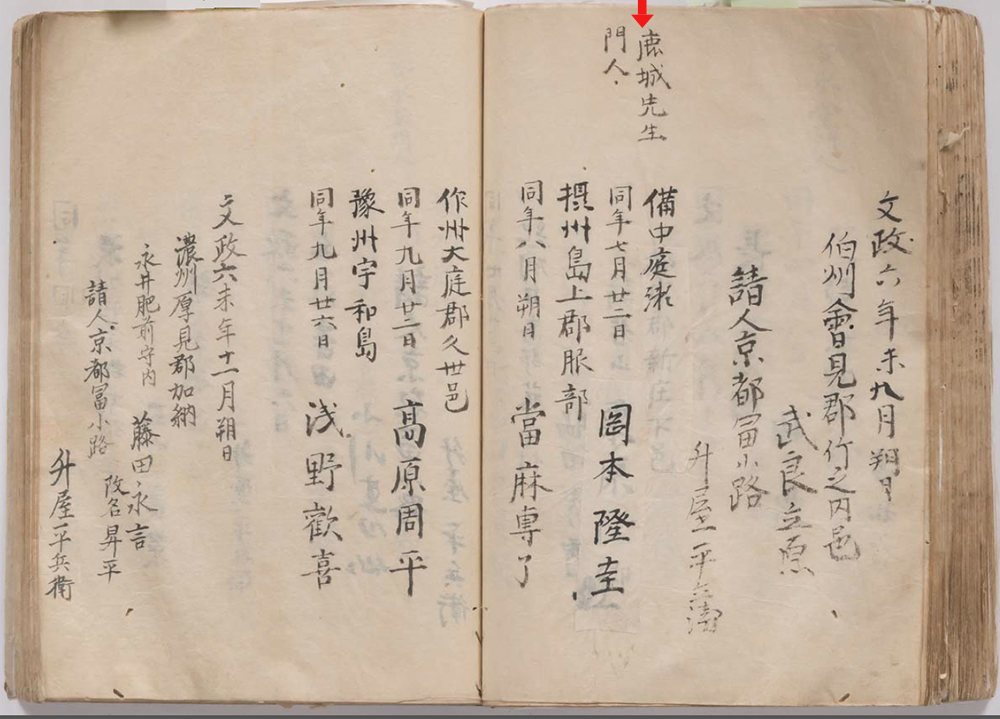 文政六年未九月朔日
伯州會見郡竹之内邑
武良立原
請人京都冨小路
升屋平兵衛
鹿城先生
門人
備中庭瀬
同年七月廿二日
岡本隆圭
摂州島上郡服部
同年八月朔日
當麻専了
作州大庭郡久世邑
同年九月廿二日
高原周平
豫州宇和島
同年九月廿六日
浅野歡喜
文政六未年十一月朔日
濃州厚見郡加納
永井肥前守内
藤田永言
改名昇平
請人京都冨小路
升屋平兵衛